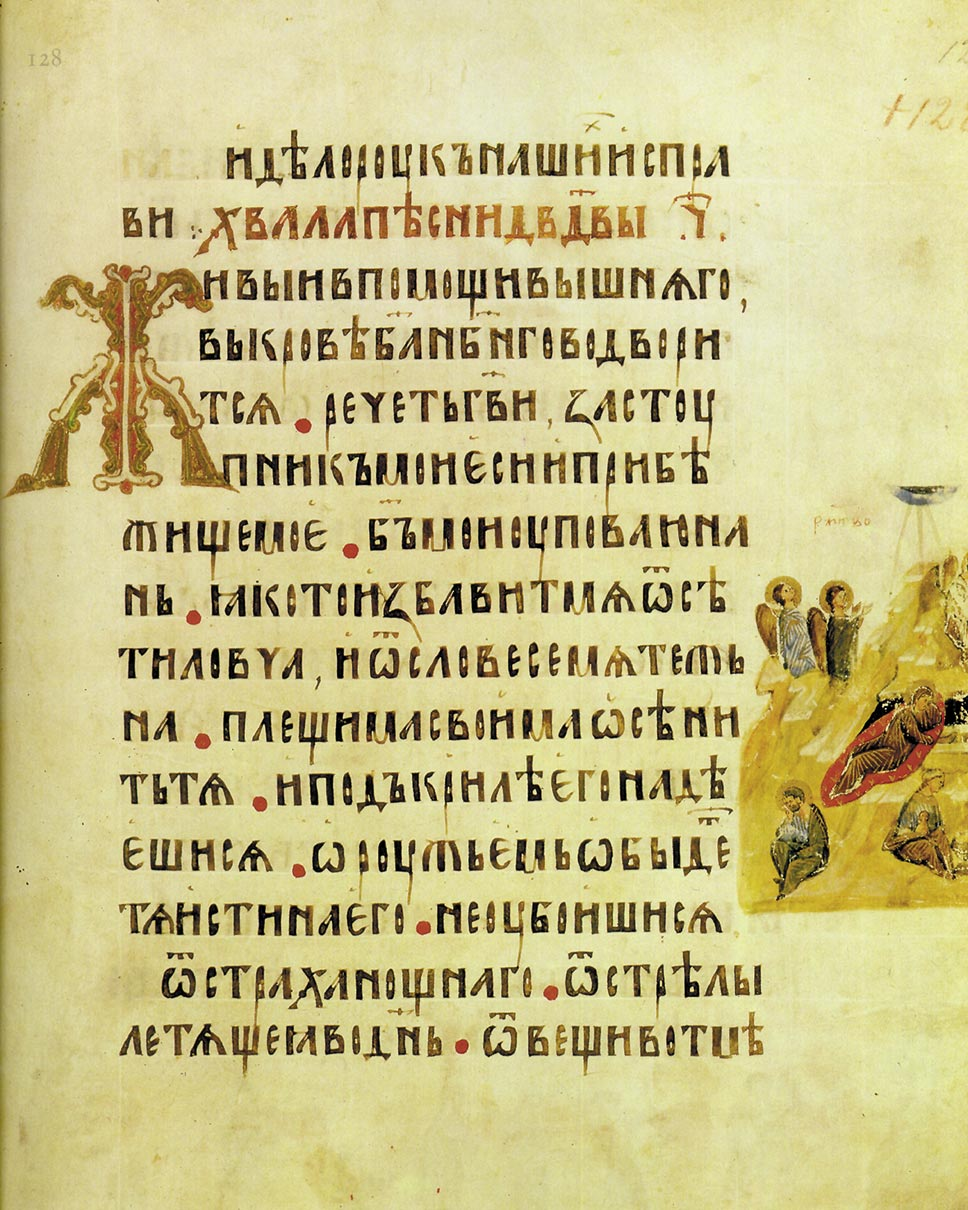 128
и дѣло роукъ нашихъ испра
ви хвала пѣсни двдвы ч҃.
Живыи в помощи вышнѧго,
вы кровѣ бл нб҃нго водвори
тсѧ . речеть гв҃и, застоу
пникъ мои еси и прибѣ
жище мое . бъ҃ мои оуповаю на
нь . ꙗко тои збавит мѧ ѿ сѣ
ти ловча, и ѿ словесе мѧтежь
на . плещима своима ѡсѣни
тьтѧ . и подъ крилѣ его надѣ
ешисѧ . ѡроужьемь ѡбыде
тѧ истина его . не оубоишисѧ
ѿ страха нощнаго . ѿ стрѣлы
летѧщеꙗ во дн҃ь . ѿ вещи во тмѣ